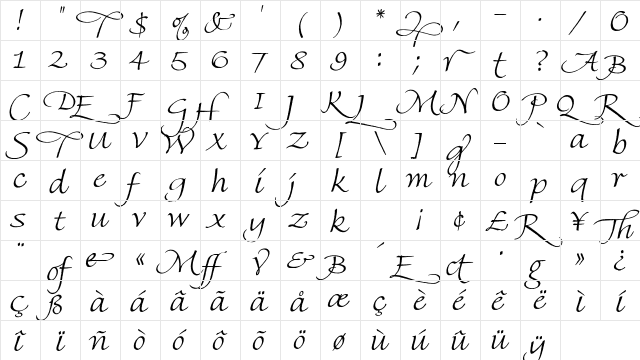 ! " T $ % & ' ( ) * , – . / 0
1 2 3 4 5 6 7 8 9 : ; r t ? A B
C D E F G H I J K J M N O P Q R
S T U V W X Y Z [ \ ] g – ` a b
c d e f g h i j k l m n o p q r
s t u v w x y z k ¡ ¢ £ R ¥ Th
¨ of e « M ff V & B ´ E ct · g » ¿
Ç ß à á â ã ä å æ ç è é ê ë ì í
î ï ñ ò ó ô õ ö ø ù ú û ü ÿ